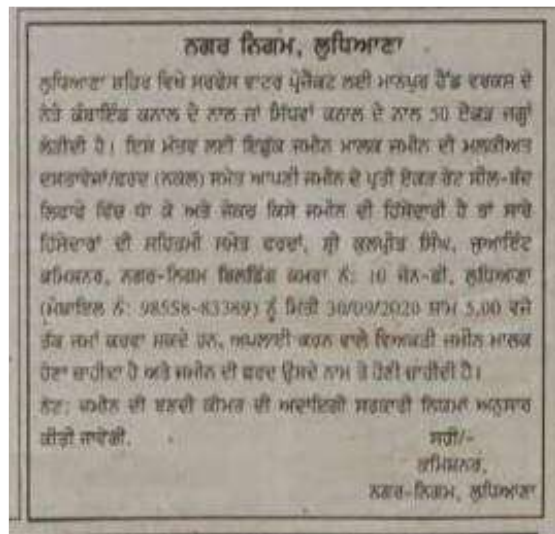 ਨਗਰ ਨਿਗਮ, ਲੁਧਿਆਣਾ
ਲੁਧਿਆਣਾ ਸ਼ਹਿਰ ਵਿਖੇ ਸਰਫੇਸ ਵਾਟਰ ਪ੍ਰੋਜੈਕਟ ਲਈ ਮਾਨਪੁਰ ਹੈੱਡ ਵਰਕਸ ਦੇ
ਨੇੜੇ ਕੰਬਾਇੰਡ ਕਨਾਲ ਦੇ ਨਾਲ ਜਾਂ ਸਿੱਧਵਾਂ ਕਨਾਲ ਦੇ ਨਾਲ 50 ਏਕੜ ਜਗ੍ਹਾ
ਲੋੜੀਦੀ ਹੈ। ਇਸ ਮੰਤਵ ਲਈ ਇਛੁੱਕ ਜਮੀਨ ਮਾਲਕ ਜਮੀਨ ਦੀ ਮਲਕੀਅਤ
ਦਸਤਾਵੇਜਾਂ/ਫਰਦ (ਨਕਲ) ਸਮੇਤ ਆਪਣੀ ਜਮੀਨ ਦੇ ਪ੍ਰਤੀ ਏਕੜ ਰੇਟ ਸੀਲ-ਬੰਦ
ਲਿਫਾਫੇ ਵਿੱਚ ਪਾ ਕੇ ਅਤੇ ਜੇਕਰ ਕਿਸੇ ਜਮੀਨ ਦੀ ਹਿੱਸੇਦਾਰੀ ਹੈ ਤਾਂ ਸਾਰੇ
ਹਿੱਸੇਦਾਰਾਂ ਦੀ ਸਹਿਤਮੀ ਸਮੇਤ ਫਰਦਾਂ, ਸ੍ਰੀ ਕੁਲਪ੍ਰੀਤ ਸਿੰਘ, ਜੁਆਇੰਟ
ਕਮਿਸ਼ਨਰ, ਨਗਰ-ਨਿਗਮ ਬਿਲਡਿੰਗ ਕਮਰਾ ਨੰ: 10 ਜੋਨ-ਡੀ, ਲੁਧਿਆਣਾ
(ਮੋਬਾਇਲ ਨੰ: 98558-83389) ਨੂੰ ਮਿਤੀ 30/09/2020 ਸ਼ਾਮ 5.00 ਵਜੇ
ਤੱਕ ਜਮਾਂ ਕਰਵਾ ਸਕਦੇ ਹਨ, ਅਪਲਾਈ ਕਰਨ ਵਾਲੇ ਵਿਅਕਤੀ ਜਮੀਨ ਮਾਲਕ
ਹੋਣਾ ਚਾਹੀਦਾ ਹੈ ਅਤੇ ਜਮੀਨ ਦੀ ਫਰਦ ਉਸਦੇ ਨਾਮ ਤੇ ਹੋਣੀ ਚਾਹੀਦੀ ਹੈ।
ਨੋਟ: ਜਮੀਨ ਦੀ ਬਣਦੀ ਕੀਮਤ ਦੀ ਅਦਾਇਗੀ ਸਰਕਾਰੀ ਨਿਯਮਾਂ ਅਨੁਸਾਰ
ਕੀਤੀ ਜਾਵੇਗੀ. ਸਹੀ/-
ਕਮਿਸ਼ਨਰ,
ਨਗਰ-ਨਿਗਮ, ਲੁਧਿਆਣਾ